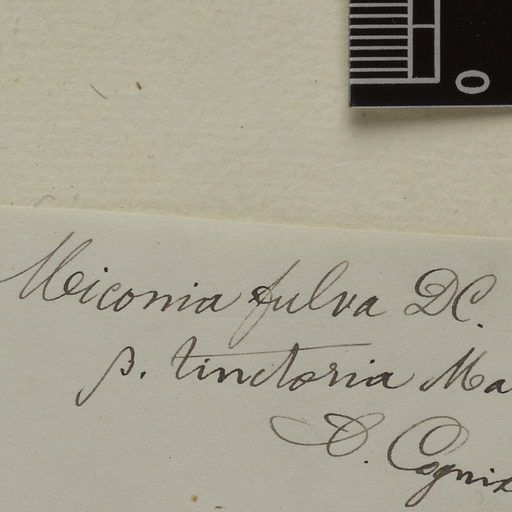 0
Miconia fulva DC.
β. tinctoria Ma
A. Cognix